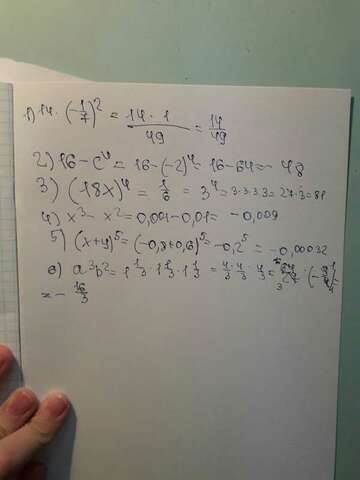 1) 14 · (-1/7)² = 14 · 1 / 49 = 14/49
2) 16 - c⁴ = 16 - (-2)⁴ = 16 - 64 = - 48
3) (18x)⁴ = 1/6 = 3⁴ = 3·3·3·3 = 27·3 = 81
4) x³ - x² = 0,001 - 0,01 = - 0,009
5) (x+y)⁵ = (-0,8+0,6)⁵ = -0,2⁵ = -0,00032
6) a³b² = 1 1/3 · 1 1/3 · 1 1/3 = 4/3 · 4/3 · 4/3 =
= - 16/3